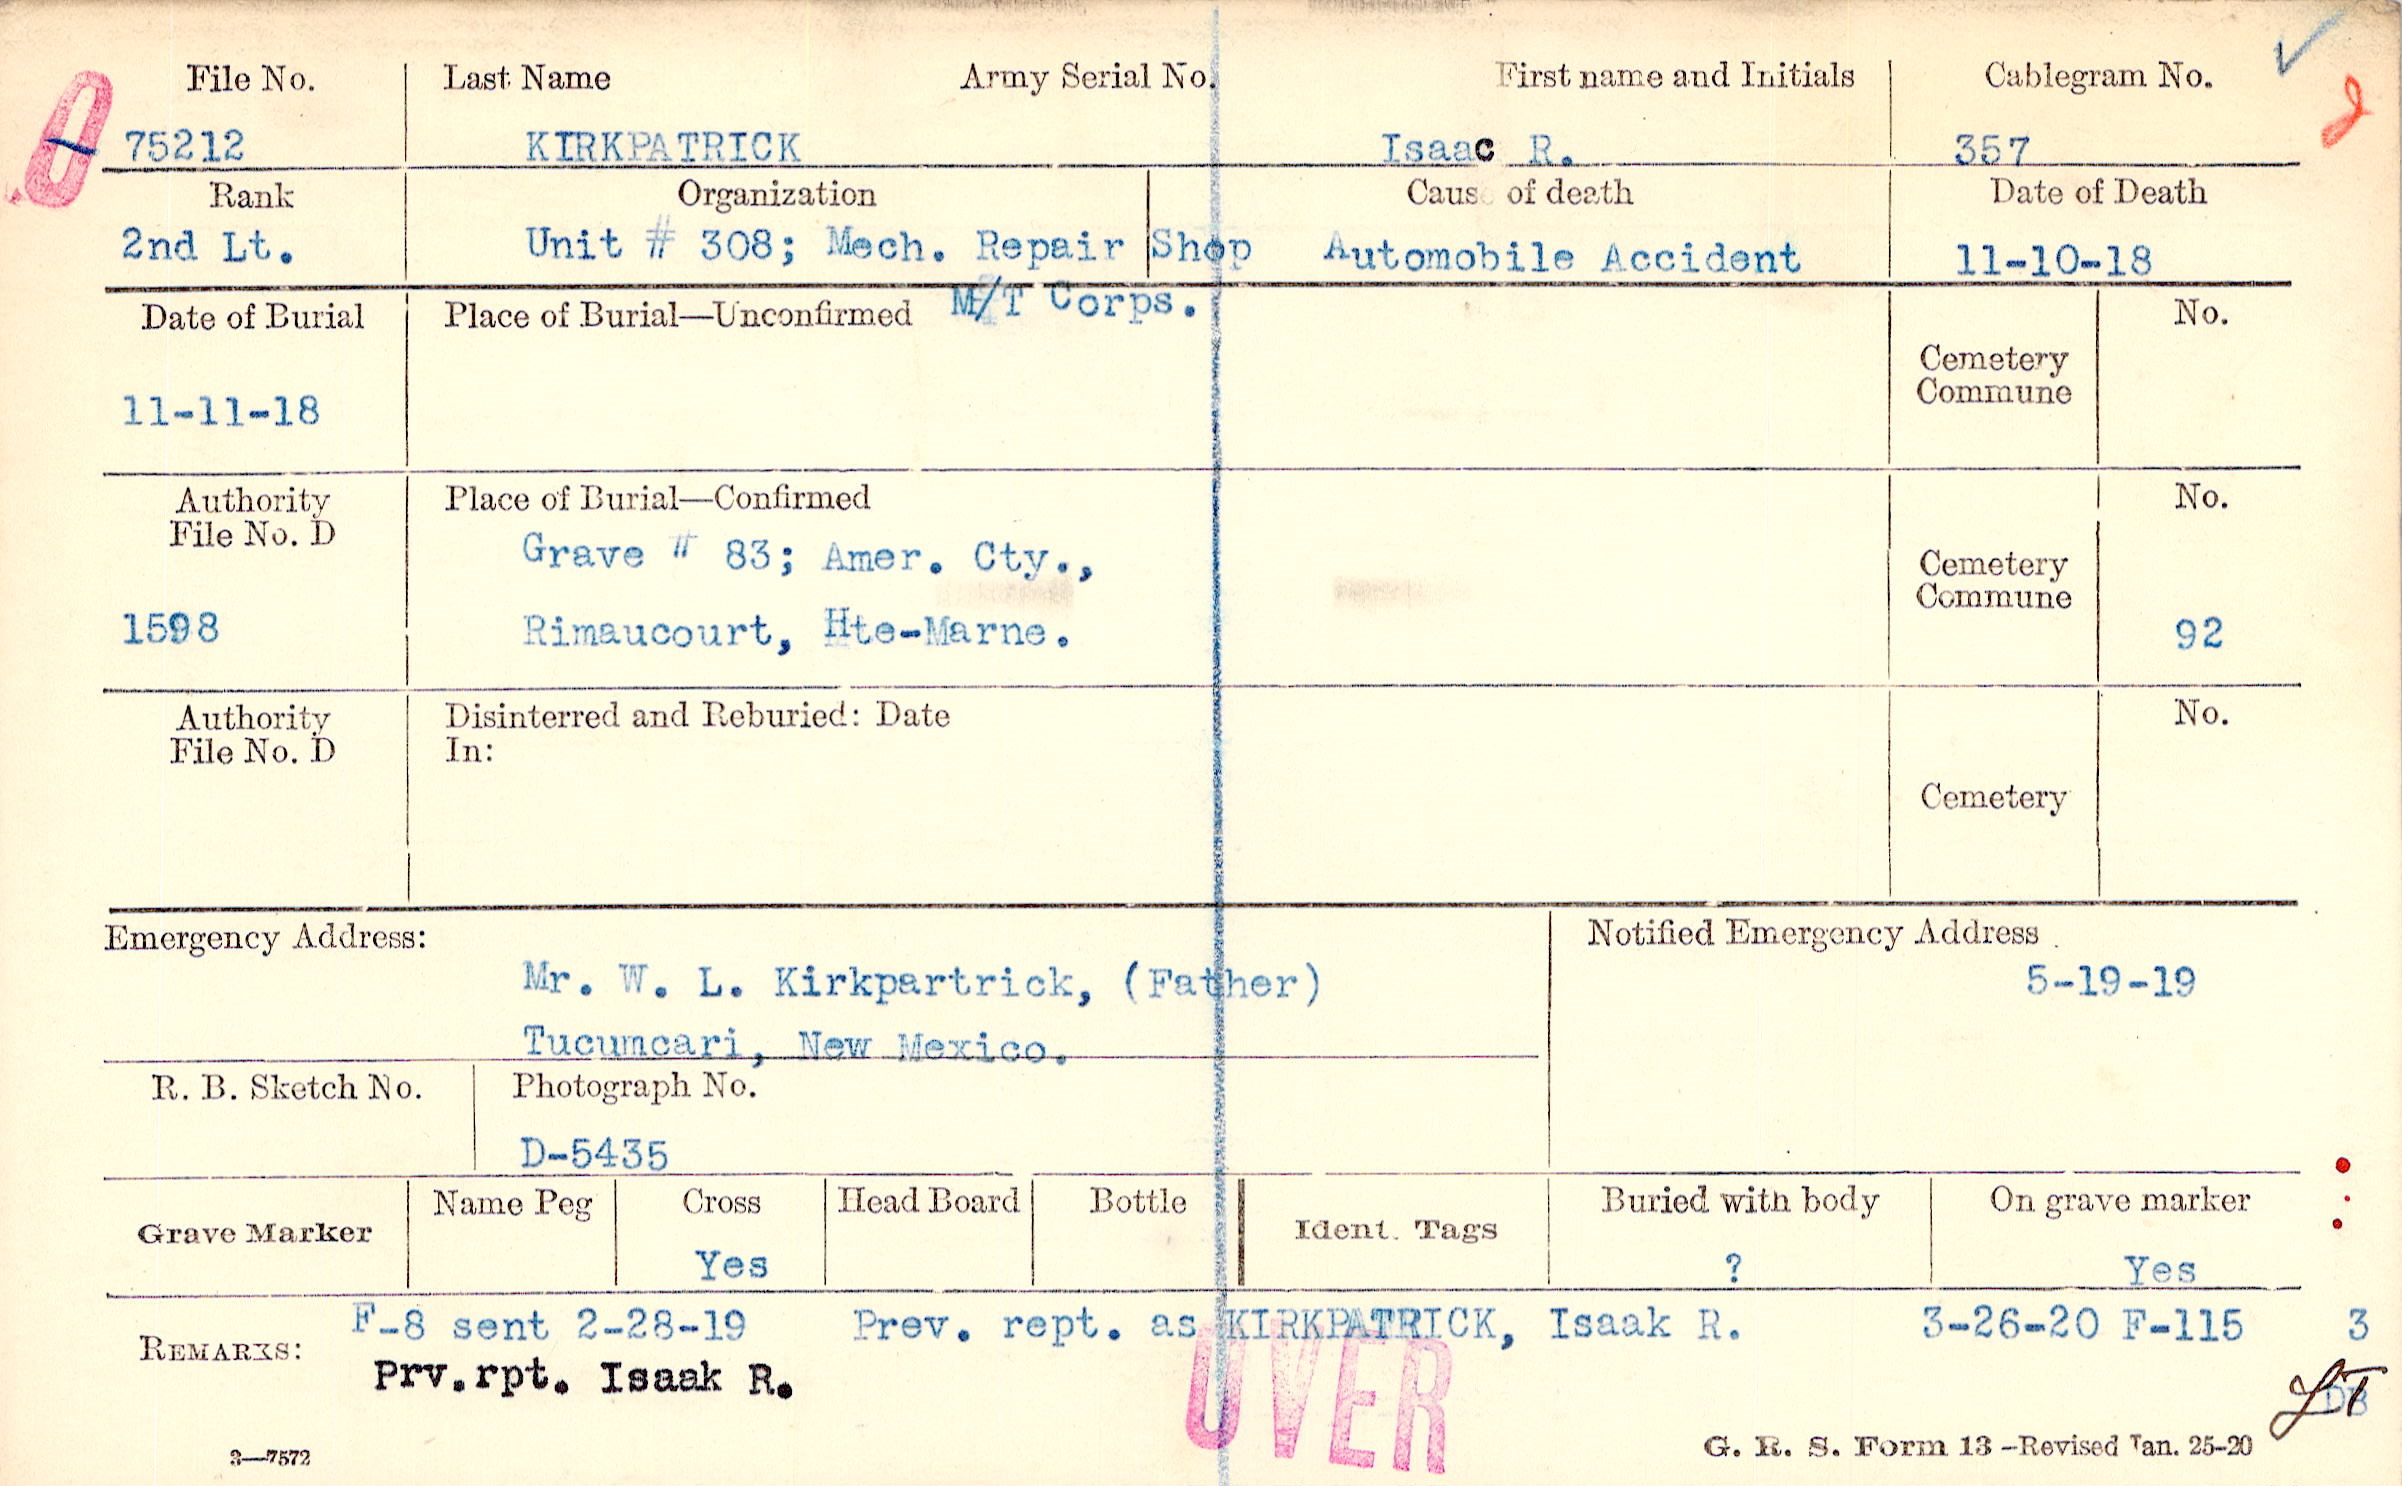 File No. Last Name Army Serial No. First name and Initials Cablegram No.
O 75212 KIRKPATRICK Isaac R. 357 2
Rank Organization Cause of death Date of Death
2nd Lt. Unit # 308; Mech. Repair Shop Automobile Accident 11-10-18
M/T Corps.
Date of Burial Place of Burial—Unconfirmed No.
Cemetery
Commune
11-11-18
Authority Place of Burial—Confirmed No.
File No. D
Grave # 83; Amer. Cty.,
Cemetery
Commune
1598 Rimaucourt, Hte-Marne. 92
Authority Disinterred and Reburied: Date No.
File No. D In:
Cemetery
Emergency Address: Notified Emergency Address
Mr. W. L. Kirkpartrick, (Father) 5-19-19
Tucumcari, New Mexico.
R. B. Sketch No. Photograph No.
D-5435
Grave Marker Name Peg Cross Head Board Bottle Ident. Tags Buried with body On grave marker
Yes ? Yes
REMARKS: F-8 sent 2-28-19 Prev. rept. as KIRKPATRICK, Isaak R. 3-26-20 F-115 3
Prv.rpt. Isaak R.
OVER
3—7572 G. R. S. Form 13—Revised Jan. 25-20